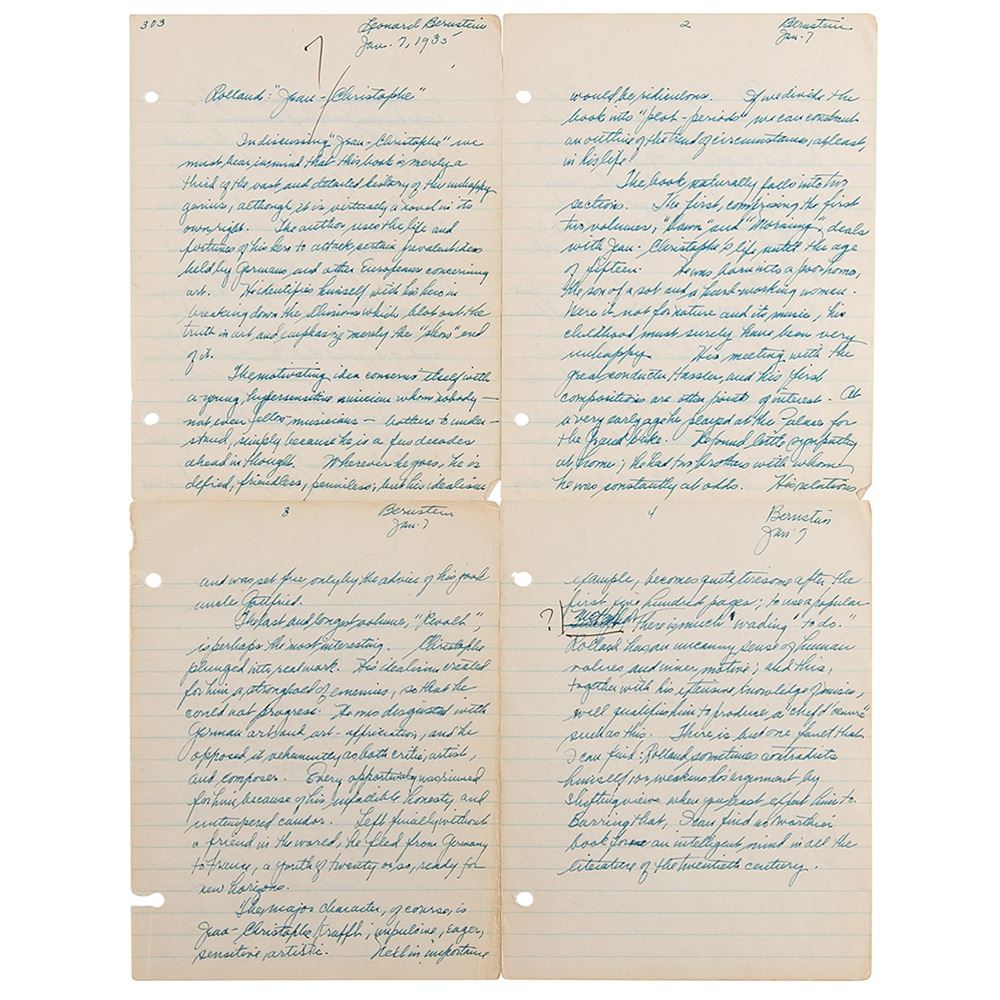 303
Leonard Bernstein
Jan. 7, 1935
?
Rolland: "Jean-Christophe"
In discussing "Jean-Christophe" we
must bear in mind that this book is merely a
third of the vast and detailed history of the unhappy
genius, although it is virtually a novel in its
own right. The author uses the life and
fortunes of his hero to attack certain prevalent ideas
held by Germans and other Europeans concerning
art. He identifies himself with his hero in
breaking down the illusions which blot out the
truth in art and emphasize merely the "show" end
of it.
The motivating idea concerns itself with
a young, hypersensitive musician whom nobody —
not even fellow musicians — bothers to under-
stand, simply because he is a few decades
ahead in thought. Wherever he goes, he is
defied, friendless, penniless; but his idealism
2
Bernstein
Jan. 7
would be ridiculous. If we divide the
book into "plot-periods" we can construct
an outline of the trend of circumstance, at least,
in his life.
The book naturally falls into two
sections. The first, comprising the first
two volumes, "Dawn" and "Morning", deals
with Jean-Christophe's life until the age
of fifteen. He was born into a poor home,
the son of a sot and a hard-working woman.
Were it not for nature and its music, his
childhood must surely have been very
unhappy. His meeting with the
great conductor Hassler, and his first
compositions are other points of interest. At
a very early age he played at the Palace for
the Grand Duke. He found little sympathy
at home; he had two brothers with whom
he was constantly at odds. His relations
3
Bernstein
Jan. 7
and was set free only by the advice of his good
uncle Gottfried.
The last and longest volume, "Revolt",
is perhaps the most interesting. Christophe
plunged into real work. His idealism created
for him a strong seed of enemies, so that he
could not progress. He was disgusted with
German art and art-appreciation, and he
opposed it vehemently as both critic, artist,
and composer. Every opportunity was ruined
for him because of his infallible honesty and
untempered candor. Left finally without
a friend in the world, he fled from Germany
to France, a youth of twenty or so, ready for
new horizons.
The major character, of course, is
Jean-Christophe Kraffft; impulsive, eager,
sensitive, artistic. Next in importance
4
Bernstein
Jan 7
example, becomes quite tiresome after the
first five hundred pages; to use a popular
?
metaphor there is much "wading" to do."
Rolland has an uncanny sense of human
values and inner motive; and this,
together with his extensive knowledge of music,
well qualifies him to produce a "chef d'oeuvre"
such as this. There is but one fault that
I can find: Rolland sometimes contradicts
himself, or weakens his argument by
shifting views when you least expect him to.
Barring that, I can find no worthier
book for an intelligent mind in all the
literature of the twentieth century.